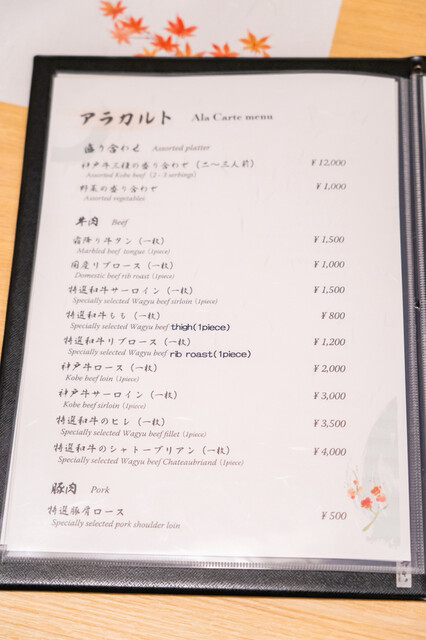 アラカルト Ala Carte menu
盛り合わせ Assorted platter
神戸牛三種の盛り合わせ (二〜三人前) ¥12,000
Assorted Kobe beef (2 - 3 serbings)
野菜の盛り合わせ ¥1,000
Assorted vegetables
牛肉 Beef
霜降り牛タン (一枚) ¥1,500
Marbled beef tongue (1piece)
国産リブロース (一枚) ¥1,000
Domestic beef rib roast (1piece)
特選和牛サーロイン (一枚) ¥1,500
Specially selected Wagyu beef sirloin (1piece)
特選和牛もも (一枚) ¥800
Specially selected Wagyu beef thigh(1piece)
特選和牛リブロース (一枚) ¥1,200
Specially selected Wagyu beef rib roast(1piece)
神戸牛ロース (一枚) ¥2,000
Kobe beef loin (1piece)
神戸牛サーロイン (一枚) ¥3,000
Kobe beef sirloin (1piece)
特選和牛のヒレ (一枚) ¥3,500
Specially selected Wagyu beef fillet (1piece)
特選和牛のシャトーブリアン (一枚) ¥4,000
Specially selected Wagyu beef Chateaubriand (1piece)
豚肉 Pork
特選豚肩ロース ¥500
Specially selected pork shoulder loin